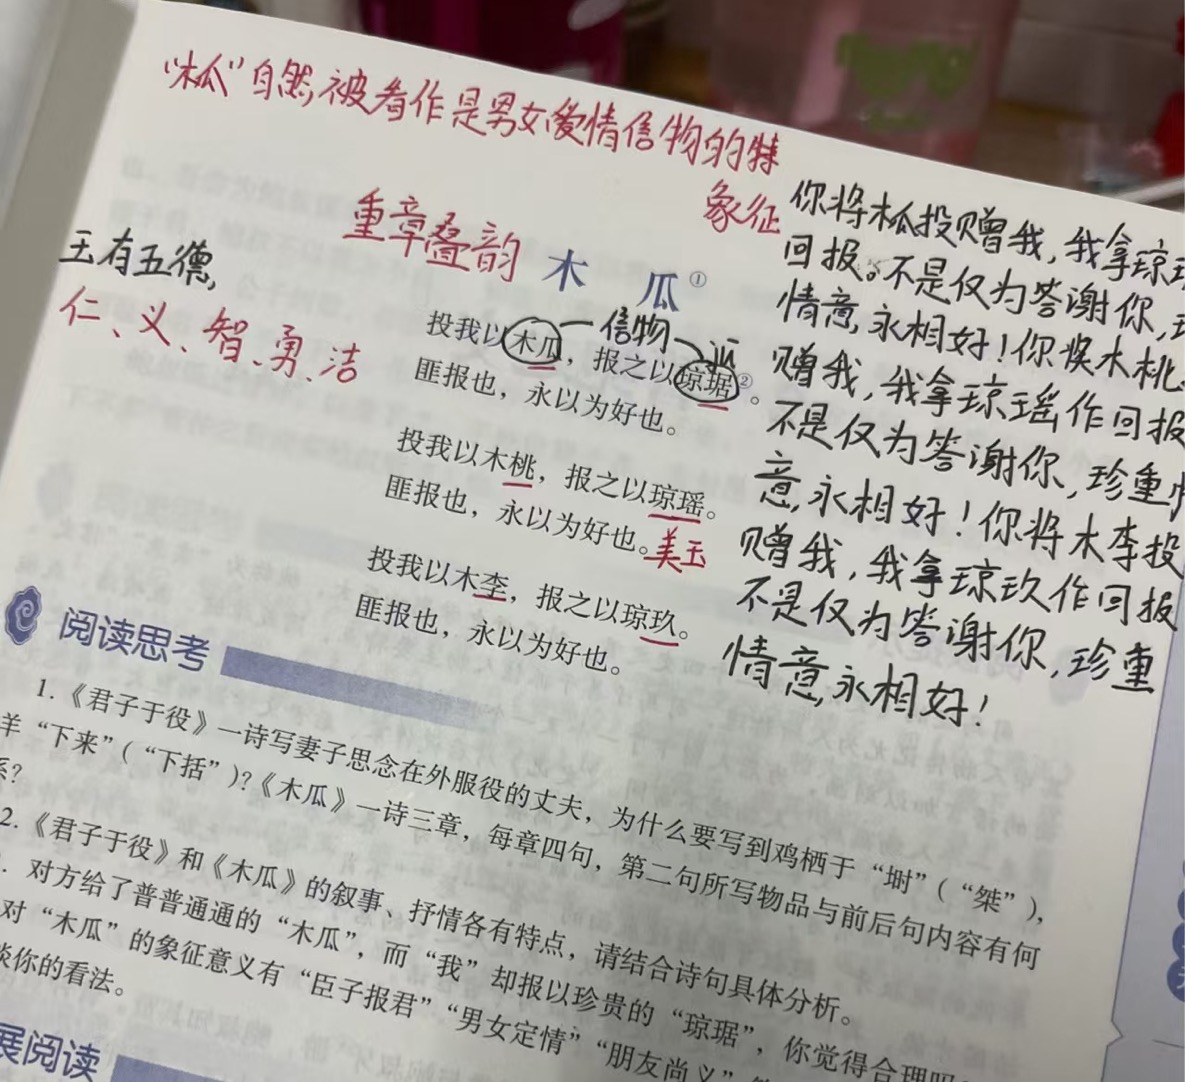 “木瓜”自然被看作是男女爱情信物的特
象征
重章叠韵
木瓜①
玉有五德,
仁、义、智、勇、洁
投我以木瓜，报之以琼琚②。
信物
匪报也，永以为好也。
投我以木桃，报之以琼瑶。
匪报也，永以为好也。
美玉
投我以木李，报之以琼玖。
匪报也，永以为好也。
你将木瓜投赠我,我拿琼
回报。不是仅为答谢你,
情意,永相好!你将木桃
赠我,我拿琼瑶作回报
不是仅为答谢你,珍重
意,永相好!你将木李投
赠我,我拿琼玖作回报
不是仅为答谢你,珍重
情意,永相好!
阅读思考
1.《君子于役》一诗写妻子思念在外服役的丈夫，为什么要写到鸡栖于“埘”(“桀”)，
羊“下来”(“下括”)?《木瓜》一诗三章，每章四句，第二句所写物品与前后句内容有何
系?
2.《君子于役》和《木瓜》的叙事、抒情各有特点，请结合诗句具体分析。
. 对方给了普普通通的“木瓜”，而“我”却报以珍贵的“琼琚”，你觉得合理吗
对“木瓜”的象征意义有“臣子报君”“男女定情”“朋友尚义”
谈你的看法。
展阅读